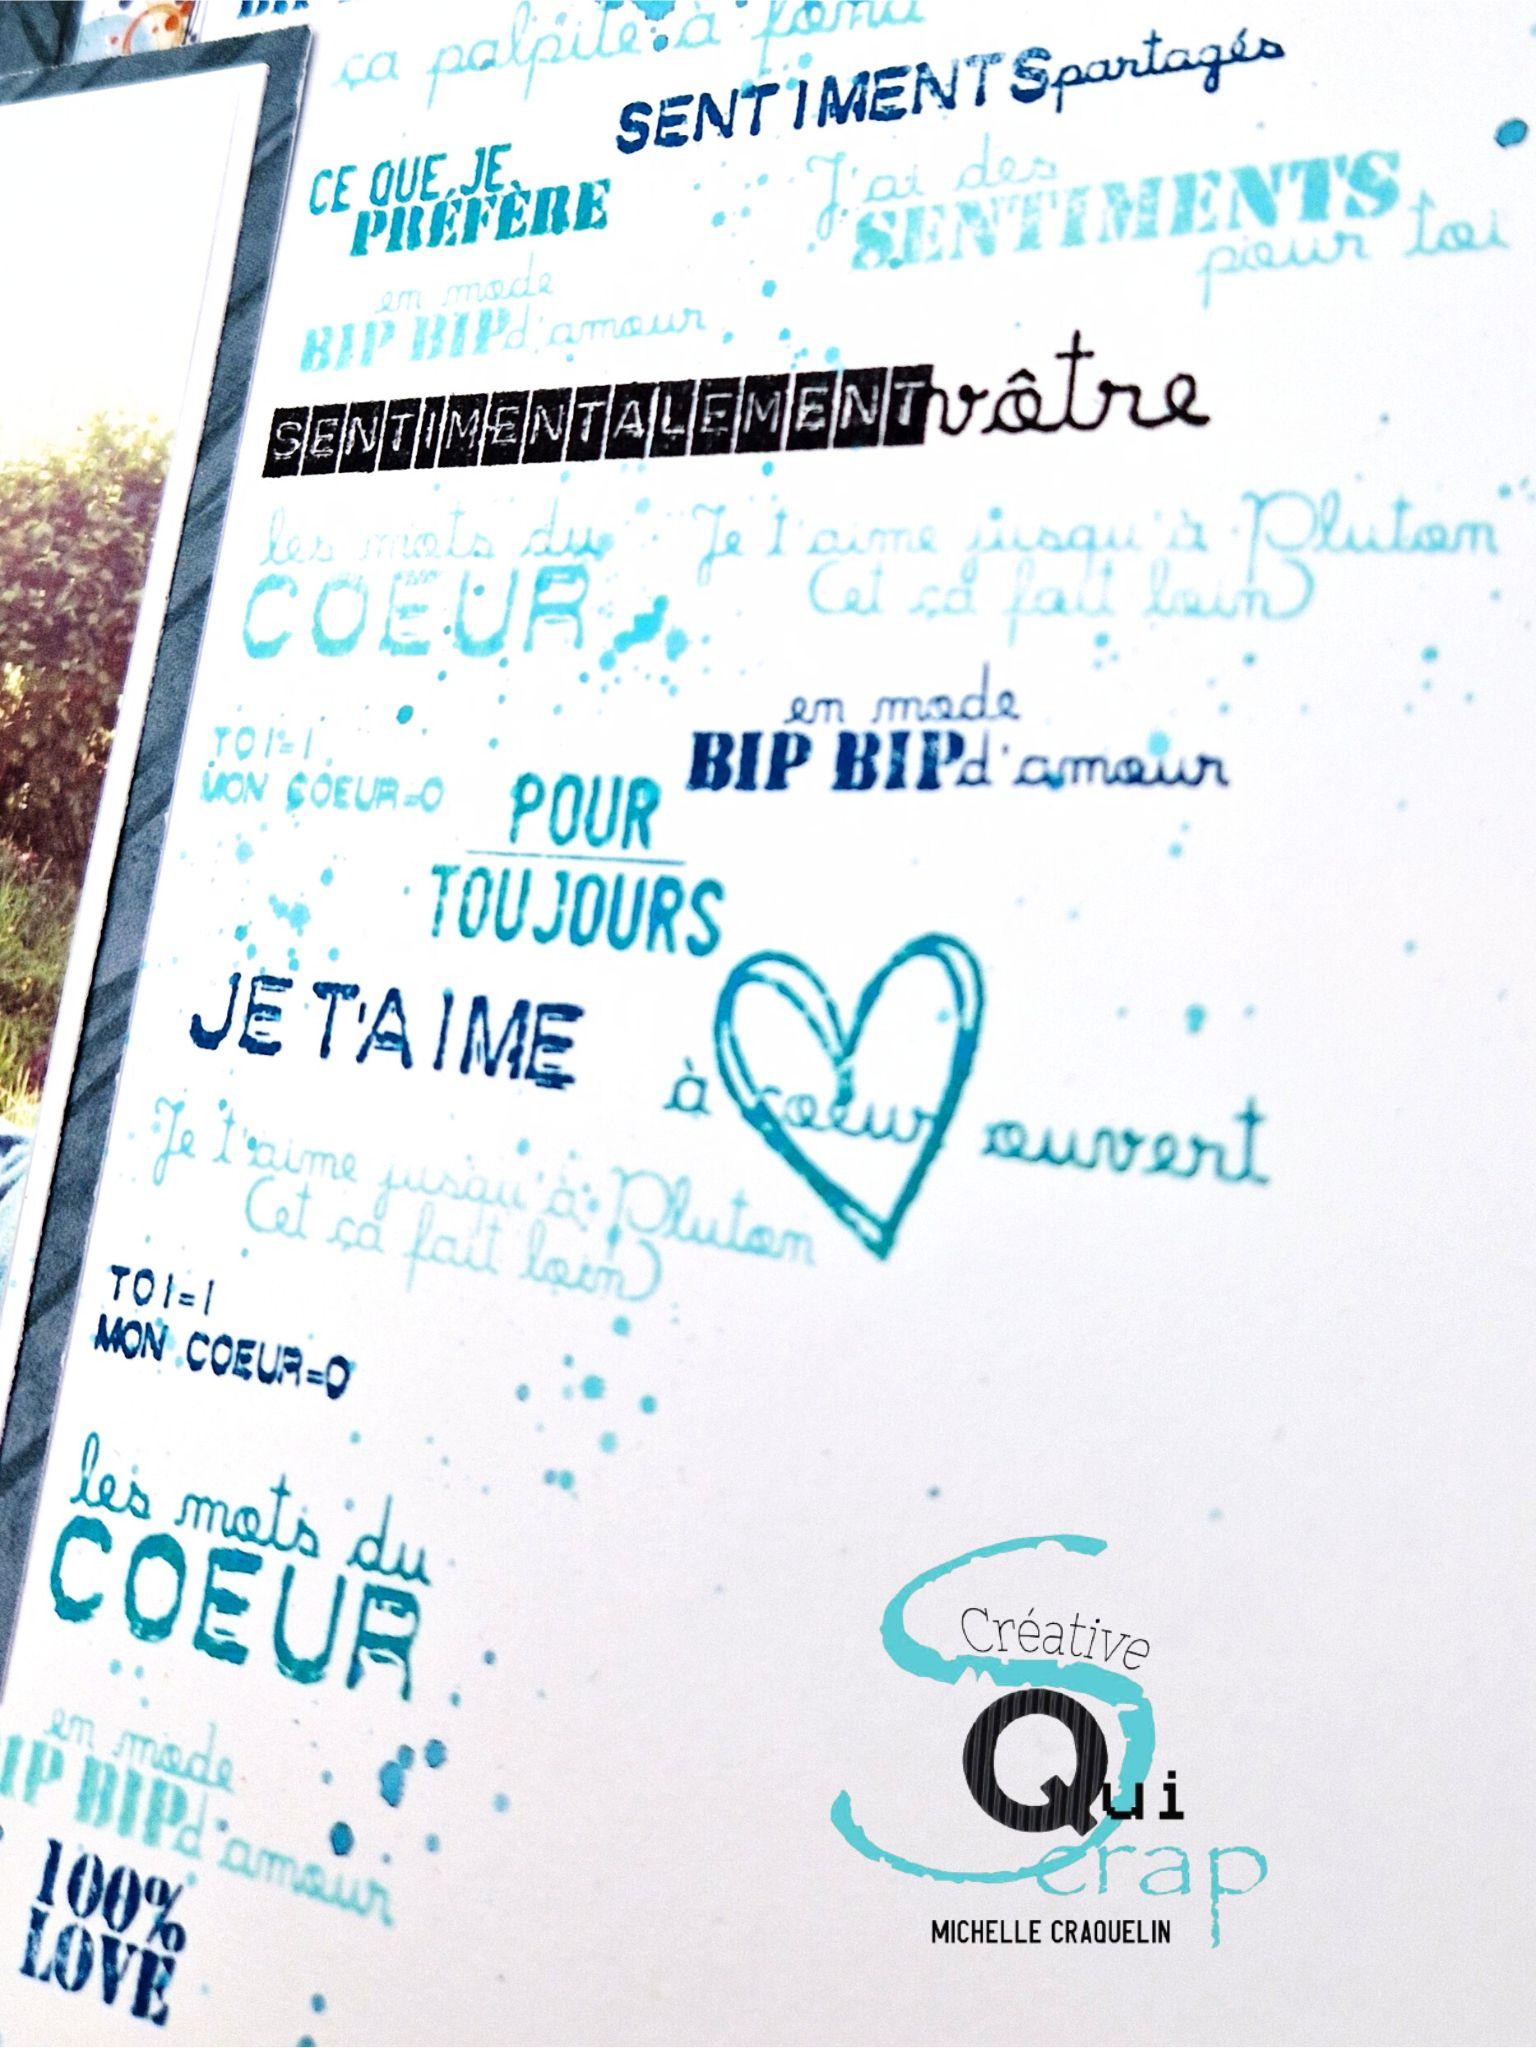 ça palpite à fond
SENTIMENTS partagés
CE QUE JE
PRÉFÈRE
J'ai des
SENTIMENTS
pour toi
en mode
BIP BIP d'amour
SENTIMENTALEMENT vôtre
les mots du
COEUR
Je t'aime jusqu'à Pluton
(et ça fait loin)
TOI=1
MON COEUR=0
en mode
BIP BIP d'amour
POUR
TOUJOURS
JE T'AIME
à coeur ouvert
Je t'aime jusqu'à Pluton
(et ça fait loin)
TOI=1
MON COEUR=0
les mots du
COEUR
en mode
BIP BIP d'amour
100%
LOVE
Créative
Qui
Scrap
MICHELLE CRAQUELIN